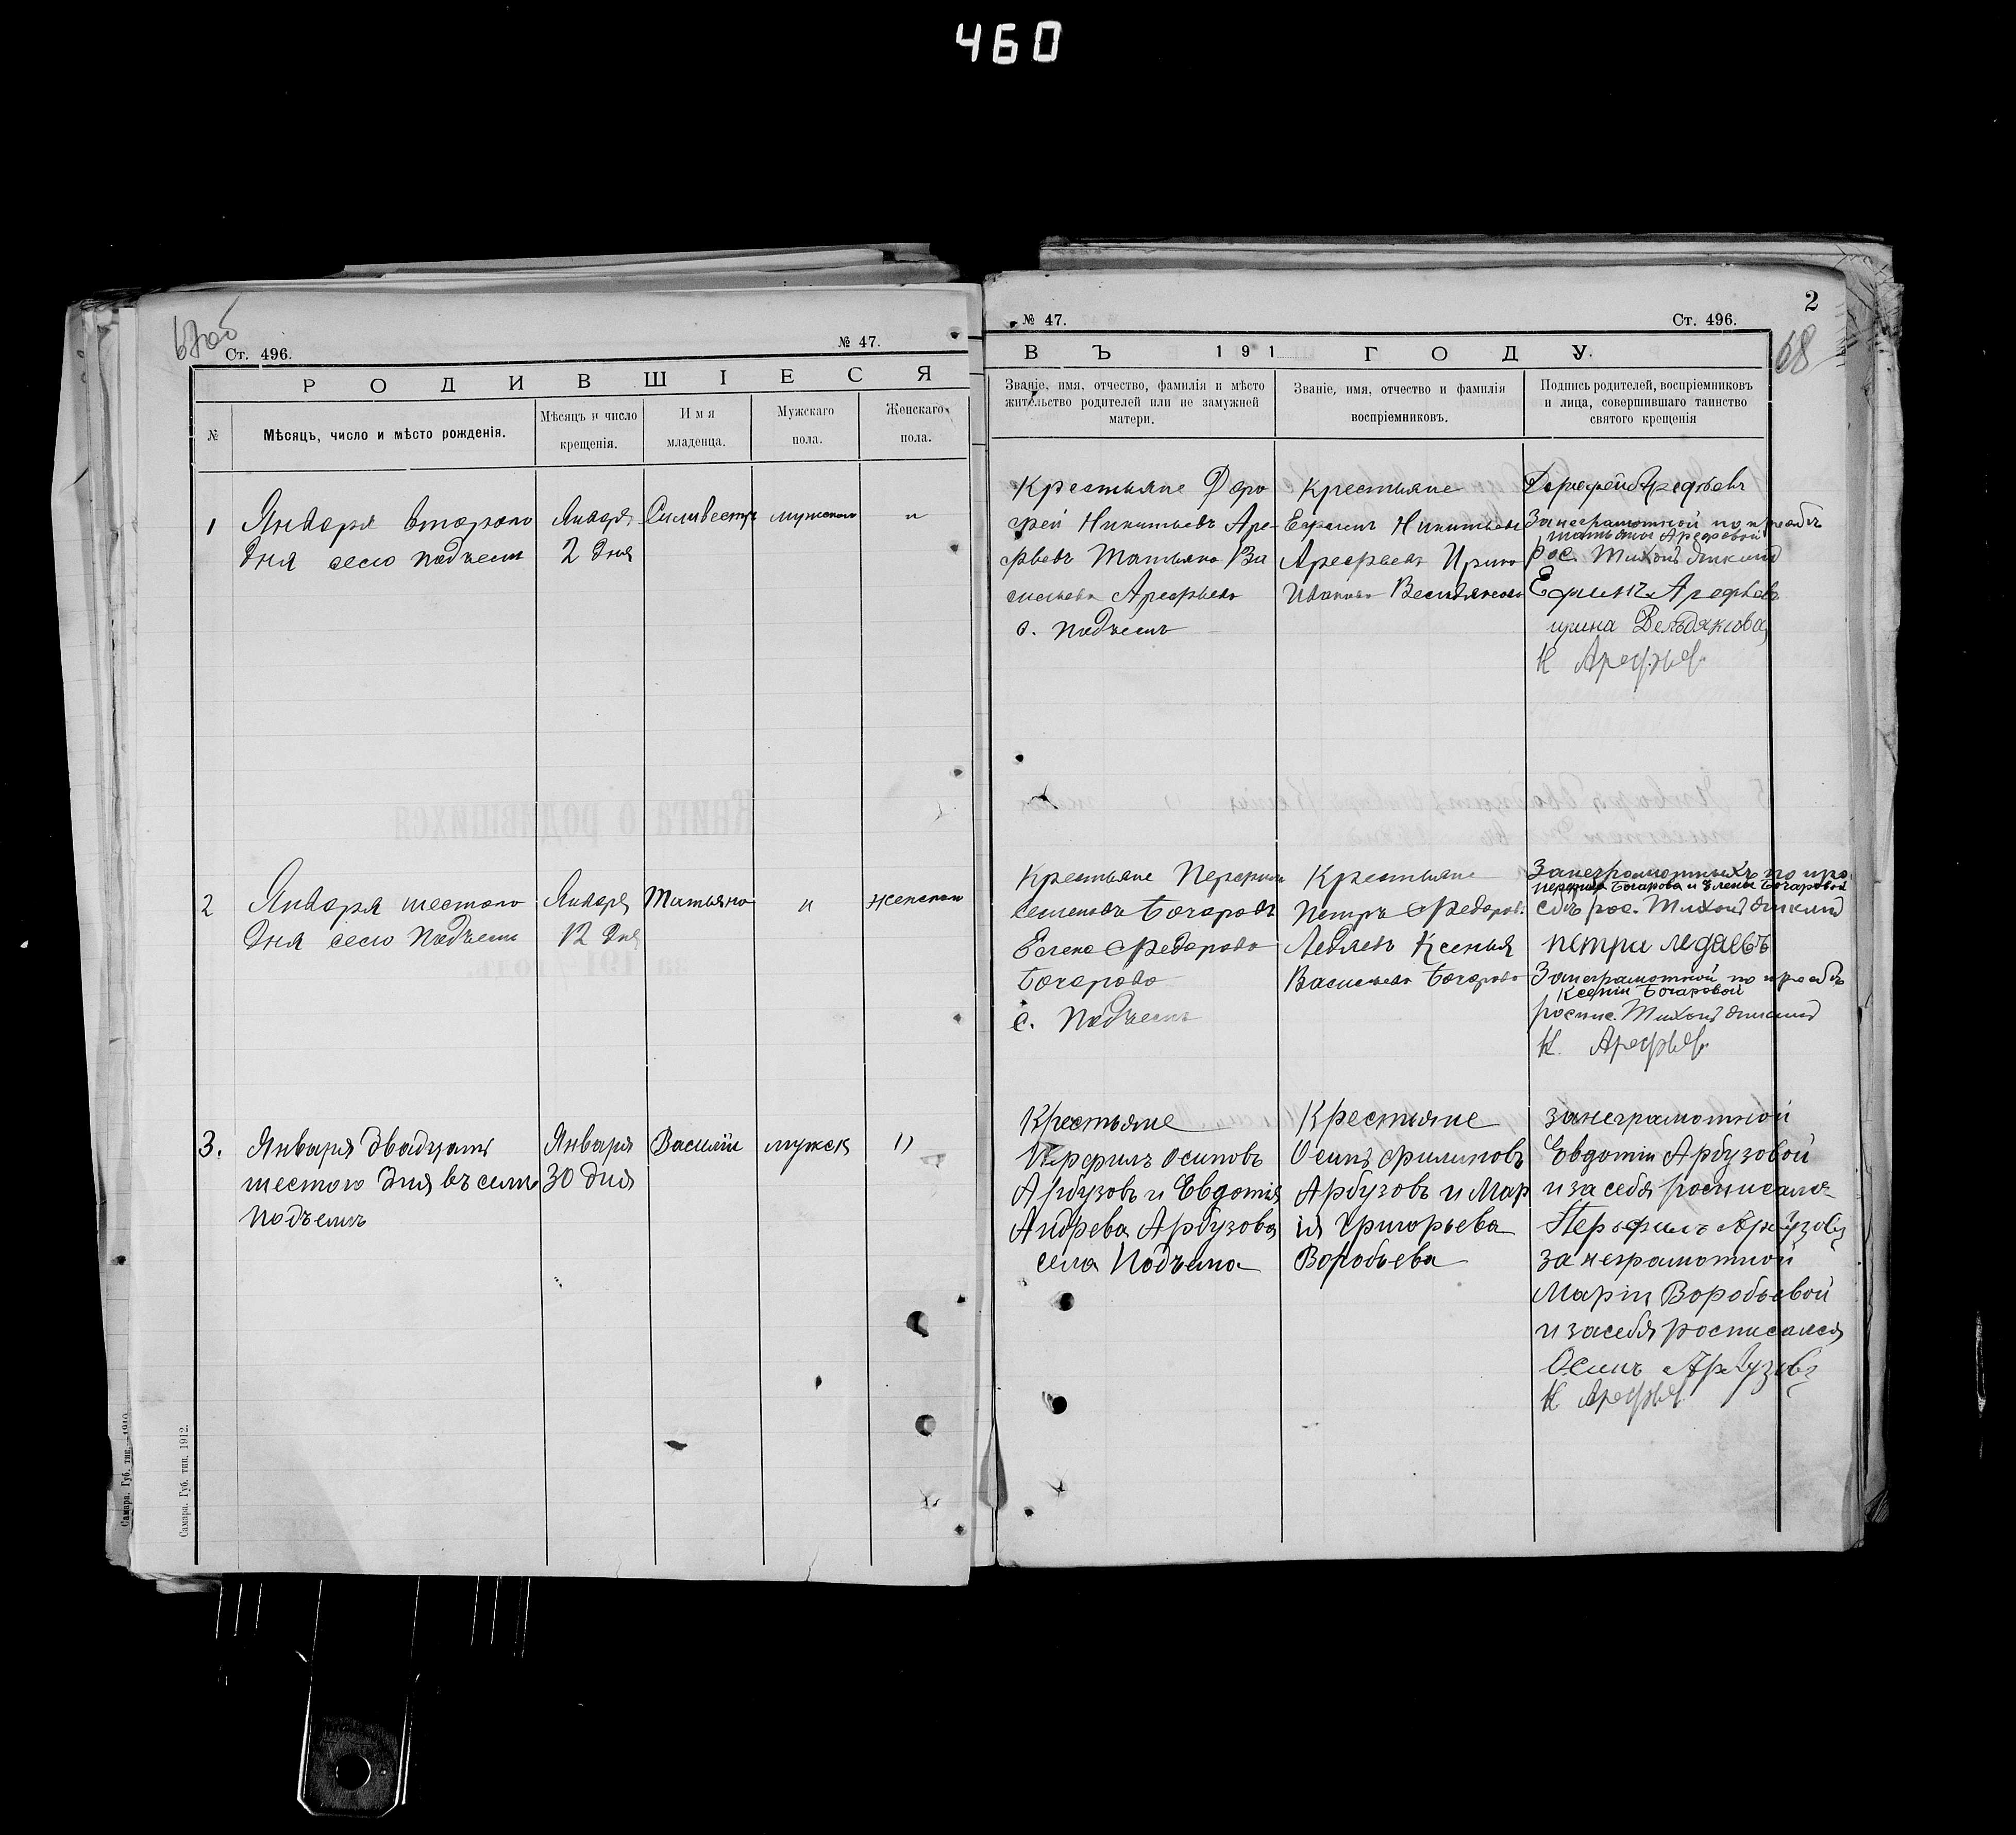 460
67об
Ст. 496.
№ 47.
РОДИВШІЕСЯ
№
Мѣсяцъ, число и мѣсто рожденія.
Мѣсяцъ и число
крещенія.
Имя
младенца.
Мужскаго
пола.
Женскаго
пола.
1
Января второго
дня село Подъем
Января
2 дня
Силивестр
мужского
"
2
Января шестого
дня село Подъем
Января
12 дня
Татьяна
"
женского
3.
Января двадцать
шестого дня въ селѣ
Подъемъ
Января
30 дня
Василiй
мужск
"
Самара. Губ. тип. 1912.
2
68
№ 47.
Ст. 496.
ВЪ 191 ГОДУ.
Званіе, имя, отчество, фамилія и мѣсто
жительство родителей или не замужней
матери.
Званіе, имя, отчество и фамилія
воспріемниковъ.
Подпись родителей, воспріемниковъ
и лица, совершившаго таинство
святого крещенія
Крестьяне Доро
фей Никитьевъ Аре-
фьевъ Татьяна Ва
сильева Арефьева
с. Подъемъ
Крестьяне
Ефимъ Никитьевъ
Арефьевъ Ирина
Иванова
Дорофей Арефьевъ
За неграмотной по просьбѣ
Татьяны Арефевой
рос. Тихонъ
Ефимъ Арефьевъ
ирина
К Арефьев
Крестьяне Перфил
Семеновъ Бочаровъ
Елена Федорова
Бочарова
с. Подъемъ
Крестьяне
Петръ Федоров.
Ледяевъ Ксенья
Васильева Бочарова
За неграмотныхъ по про
перфила Бочарова и Елены Бочаровой
сбѣ рос. Тихонъ
петри ледаевъ
За неграмотной по просбѣ
Ксении Бочаровой
роспис. Тихонъ
К. Арефьев
Крестьяне
Перфилъ Осиповъ
Арбузовъ и Евдотiя
Андрева Арбузова
села Подъема
Крестьяне
Осипъ Филиповъ
Арбузовъ и Мар
iя Григорьева
Воробьева
за неграмотной
Евдотiи Арбузовой
и за себя росписалсе
Перьфилъ Арбузовъ
за неграмотной
Марiи Воробьевой
и за себя росписался
Осипъ Арбузовъ
К Арефьев